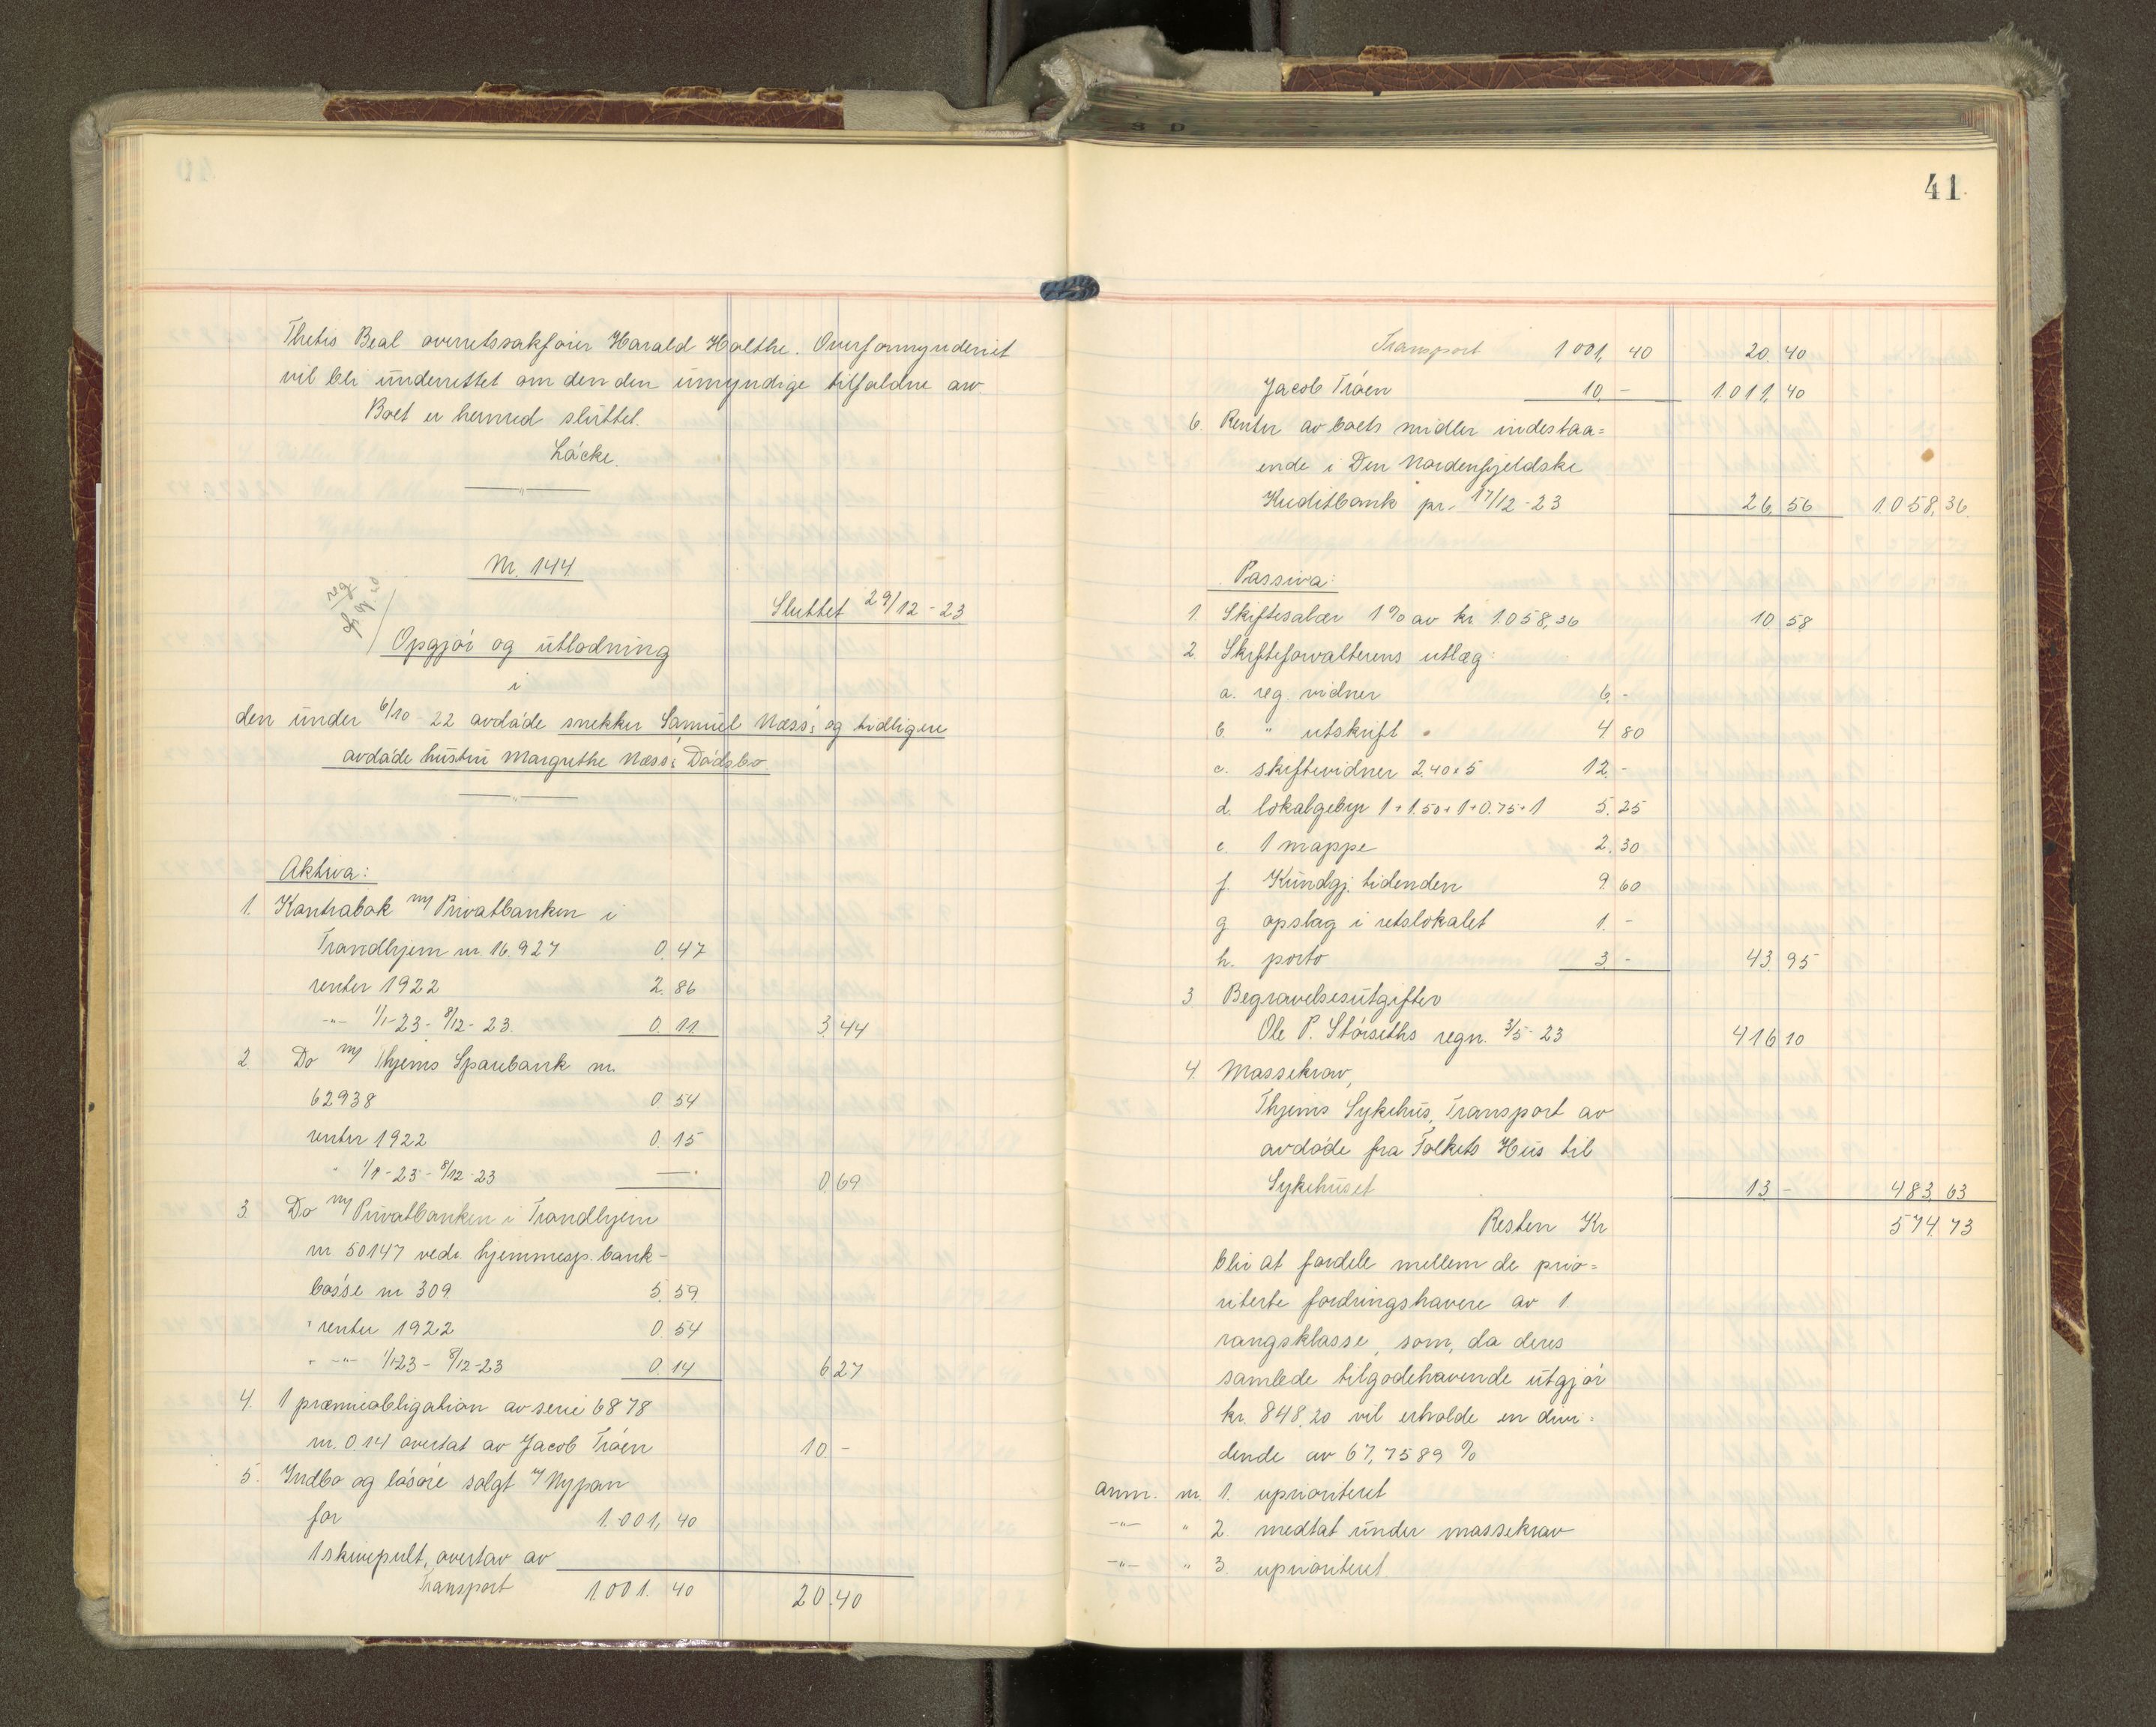 Thetis Beal overretssakfører Harald Holthe. Overformynderiet
vil bli underrettet om den den umyndige tilfaldne arv.
Boet er hermed sluttet.
Läcke.
Nr. 144
Sluttet 29/12-23
Opgjør og utlodning
i
den under 6/10 22 avdøde snekker Samuel Næss: og tidligere
avdøde hustru Margrethe Næss: Dødsbo
Aktiva:
1. Kontrabok m/ Privatbanken i
Trondhjem nr 16.927 0.47
renter 1922 2.86
-"- 1/1-23 - 8/12-23. 0.11 3.44
2 Do m/ Thjems Sparebank nr.
62938 0.54
renter 1922 0.15
" 1/1-23 - 8/12-23 — 0.69
3. Do m/ Privatbanken i Trondhjem
nr 50147 vedr. hjemmesp. bank-
bøsse nr 309. 5.59
" renter 1922 0.54
" -"- 1/1-23 - 8/12-23 0.14 6.27
4. 1 præmieobligation av serie 6878
nr. 014 overtat av Jacob Trøen 10 -
5. Indbo og løsøre solgt v/ Nypan
for 1.001,40
1 skrivepult, overtav av
Transport 1.001.40 20.40
41
Transport 1001,40 20.40
Jacob Trøen 10,- 1.011,40
6. Renter av boets midler indestaa=
ende i Den Nordenfjeldske
Kreditbank pr. 17/12-23 26,56 1.058,36
Passiva:
1. Skiftesalær 1% av kr 1.058,36 10 58
2. Skifteforvalterens utlæg:
a. reg. vidner 6,-
b " utskrift 4.80
c. skiftevidner 2.40 x 5 12,-
d. lokalgebyr 1+1.50+1+0.75+1 5.25
e. 1 mappe 2.30
f. Kundgj. tidenden 9.60
g opslag i retslokalet 1.-
h. porto 3,- 43.95
3 Begravelsesutgifter
Ole P. Størseths regn. 3/5-23 416 10
4. Massekrav,
Thjems Sykehus, Transport av
avdøde fra Folkets Hus til
Sykehuset 13 - 483.63
Resten Kr 574.73
blir at fordele mellem de prio=
riterte fordringshavere av 1.
rangsklasse, som, da deres
samlede tilgodehavende utgjør
kr. 848.20 vil erholde en divi=
dende av 67,7589 %
anm. nr. 1. uprioritert
-"- " 2 medtat under massekrav
-"- " 3. uprioritert.